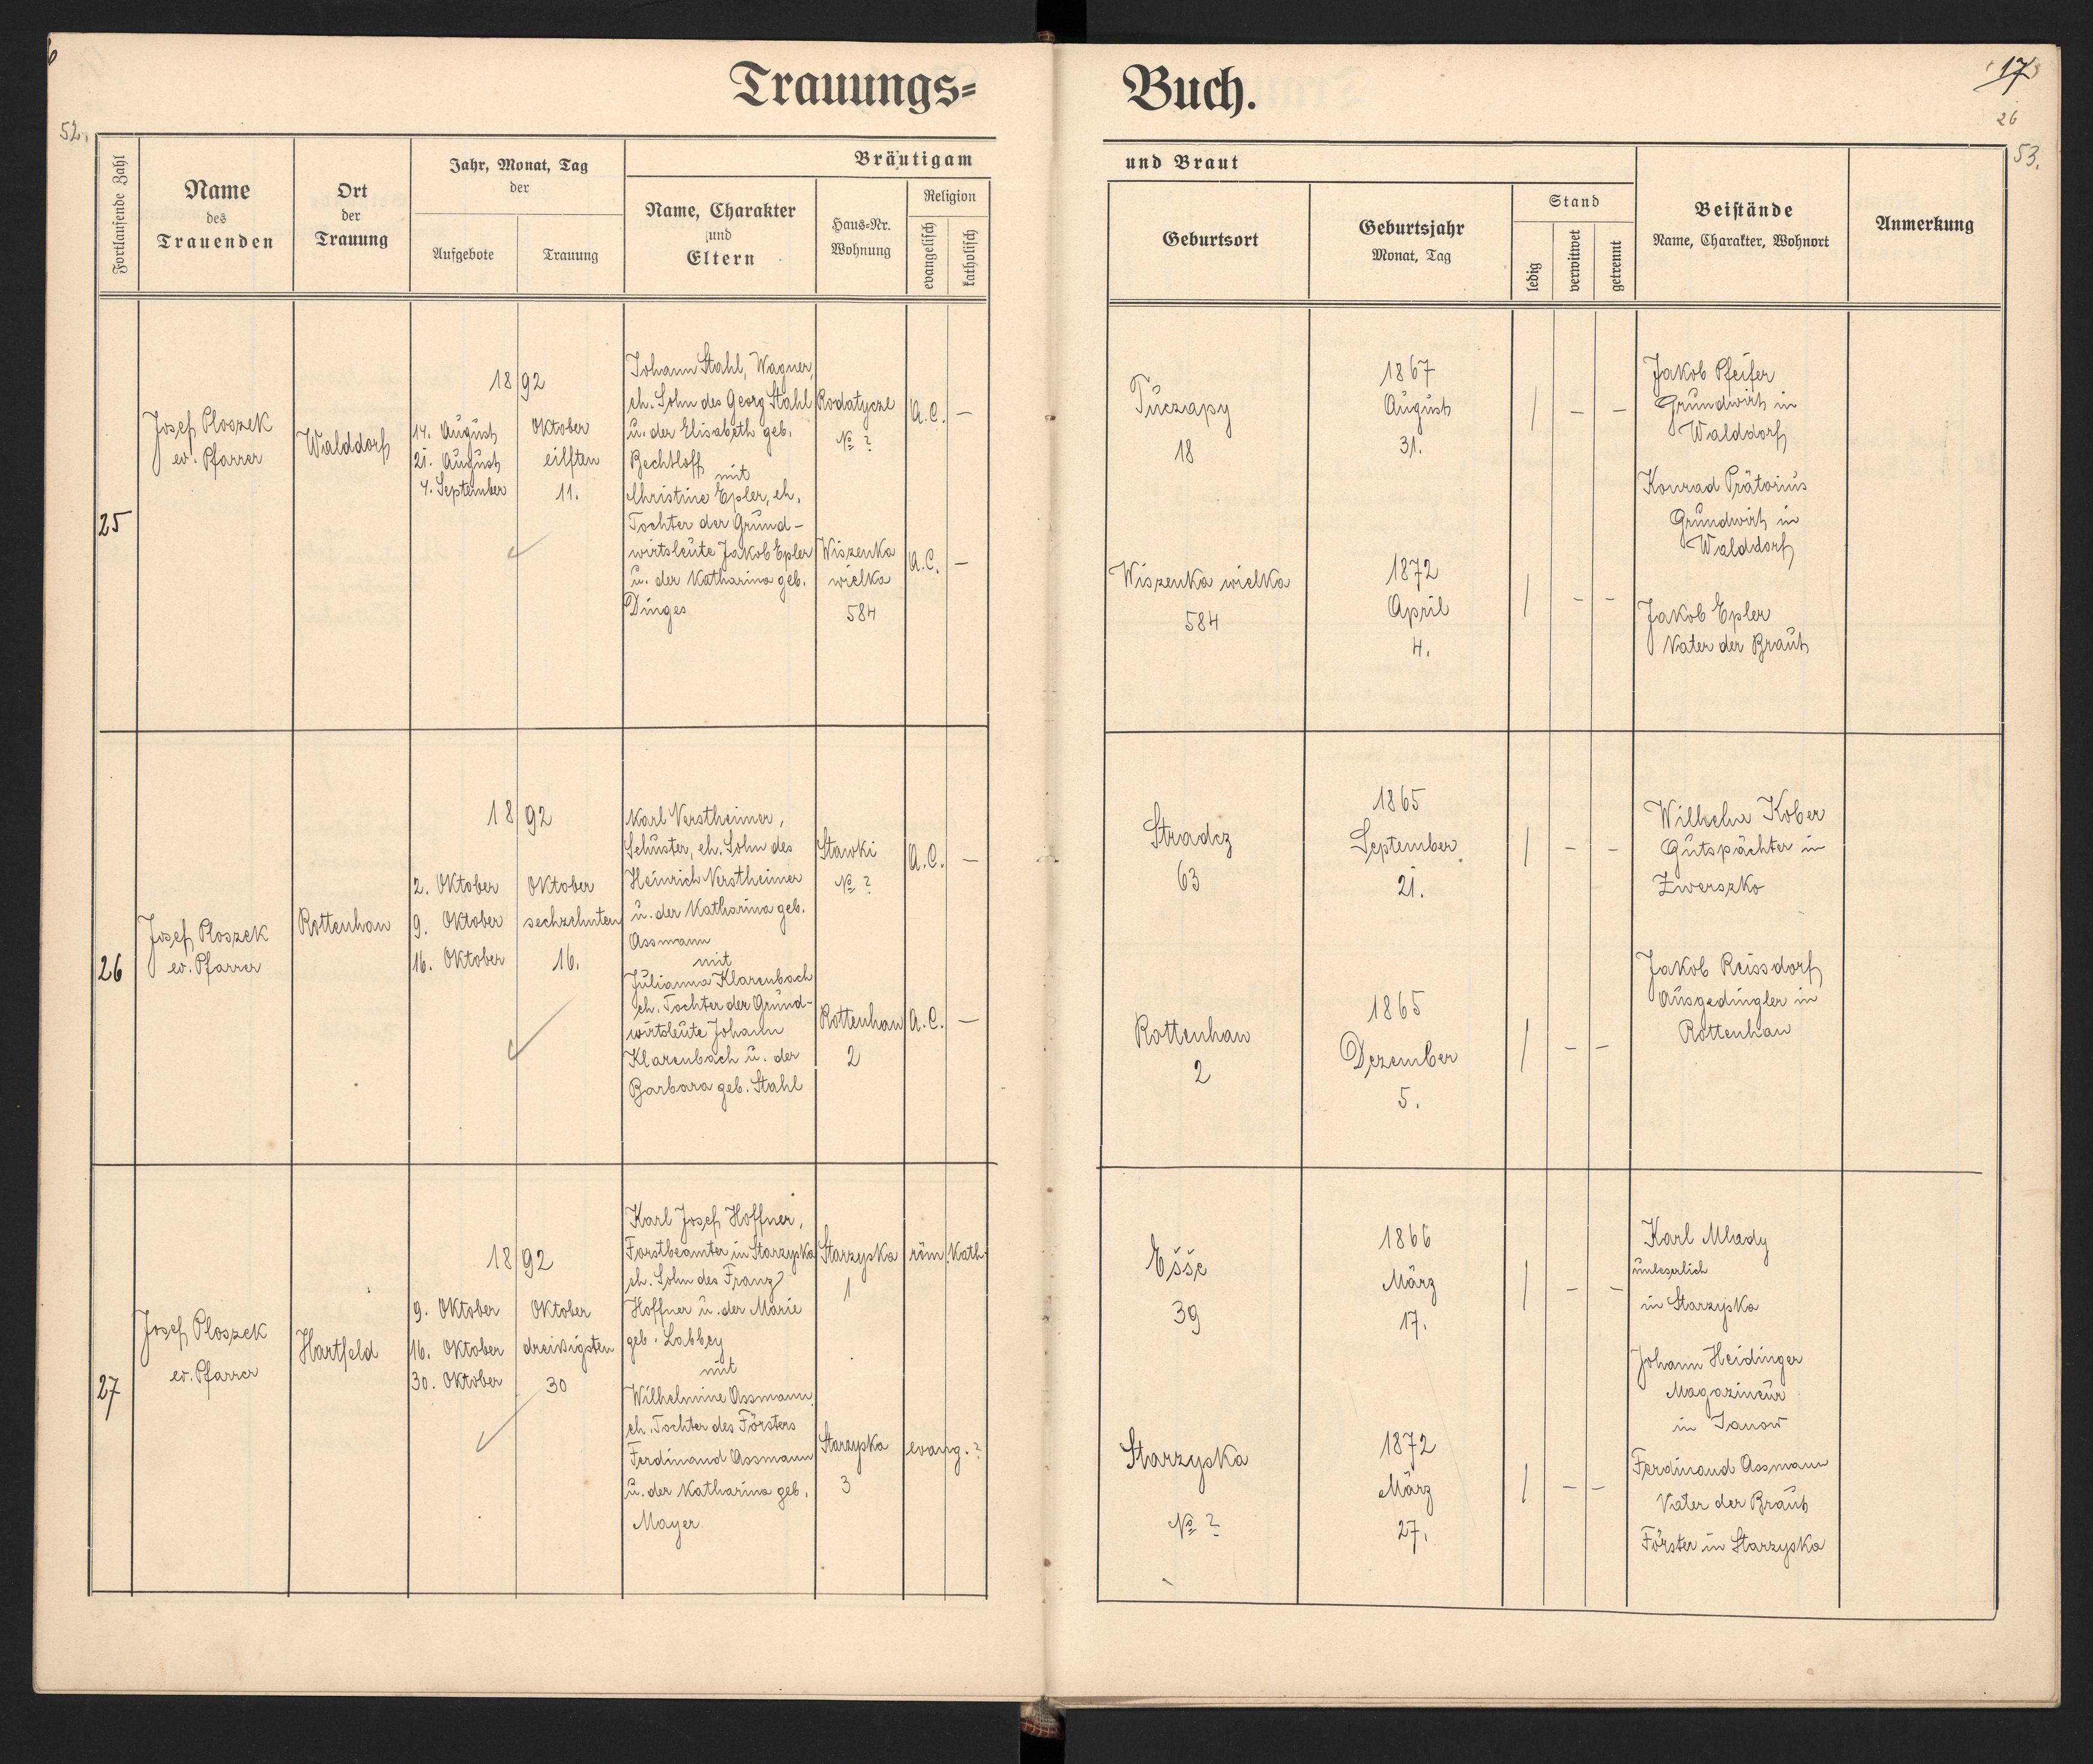 Trauungs=
52.
Fortlaufende Zahl
Name
des
Trauenden
Ort
der
Trauung
Jahr, Monat, Tag
der
Aufgebote
Trauung
Bräutigam
Name, Charakter
und
Eltern
Haus=Nr.
Wohnung
Religion
evangelisch
katholisch
25
Josef Ploszek
ev. Pfarrer
Walddorf
1892
14. August
21. August
4. September
Oktober
eilften
11.
Johann Stahl, Wagner,
eh. Sohn des Georg Stahl
u. der Elisabeth geb.
Bechtloff
mit
Christine Epler, eh.
Tochter der Grund-
wirtsleute Jakob Epler
u. der Katharina geb.
Dinges
Rodatycze
No ?
A.C.
–
Wiszenka
wielka
584
A.C.
–
26
Josef Ploszek
ev. Pfarrer
Rottenhan
1892
2. Oktober
9. Oktober
16. Oktober
Oktober
sechzehnten
16.
Karl Verstheimer,
Schuster, eh. Sohn des
Heinrich Verstheimer
u. der Katharina geb.
Assmann
mit
Julianna Klarenbach
eh. Tochter der Grund-
wirtsleute Johann
Klarenbach u. der
Barbara geb. Stahl
Stawki
No ?
A.C.
–
Rottenhan
2
A.C.
–
27
Josef Ploszek
ev. Pfarrer
Hartfeld
1892
9. Oktober
16. Oktober
30. Oktober
Oktober
dreißigsten
30
Karl Josef Hoffner,
Forstbeamter in Starzyska
eh. Sohn des Franz?
Hoffner u. der Marie
geb. Labbey
mit
Wilhelmine Assmann,
eh. Tochter des Försters
Ferdinand Assmann
u. der Katharina geb.
Mayer
Starzyska
1
röm. kath.
Starzyska
3
evang. ?
Buch.
17
26
53.
und Braut
Geburtsort
Geburtsjahr
Monat, Tag
Stand
ledig
verwitwet
getrennt
Beistände
Name, Charakter, Wohnort
Anmerkung
Tuczapy
18
1867
August
31.
/ – –
Jakob Pfeifer
Grundwirt in
Walddorf
Konrad Prätorius
Grundwirt in
Walddorf
Wiszenka wielka
584
1872
April
4.
/ – –
Jakob Epler
Vater der Braut
Stradcz
63
1865
September
21.
/ – –
Wilhelm Kober
Gutspächter in
Zwerszko
Rottenhan
2
1865
Dezember
5.
/ – –
Jakob Reissdorf
Ausgedingler in
Rottenhan
Ešše
39
1866
März
17.
/ – –
Karl Mlady
unleserlich
in Starzyska
Johann Heidinger
Magazineur
in Janow
Starzyska
No ?
1872
März
27.
/ – –
Ferdinand Assmann
Vater der Braut
Förster in Starzyska